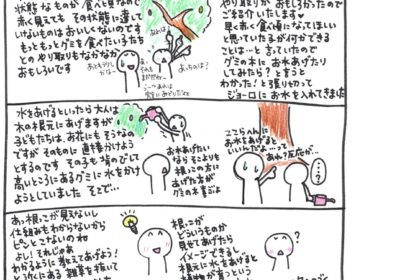 状態なものが食べ頃なので
赤く見えても その状態に達して
いけないものはおいしくないのです
もっともっとグミを食べたい子たち
との やり取りもなかなか
おもしろいです
やり取りが おもしろかったので
ご紹介いたします♥
早く赤く食べ頃になってほしい
と思っている子が何ができる
ことは…と言っていたので
グミの木に お水あげたり
してみたら？と言うと
わかった！と張り切って
ジョーロにお水を入れてきました
水をあげるといったら 大人は
木の根元にあげますが
子どもたちは、お花にもそうなの
ですが そのものに直接かけよう
とするのです その子も背のびして
高いところにあるグミに水をかけ
ようとしていました そこで…
お水あげたい
ならそこよりも
根っこの方に
あげた方が
グミの木喜ぶよ
ここらへんに
お水をあげると
いいんだよ…って
あれ？反応が…
…？
あっ根っこが見えないし
仕組みもわからないから
ピンとこないのね
よし！それじゃあ
わかるように教えてあげよう！
と近くにある雑草を抜いて
根っこが
どういうものか
見せてあげたら
イメージできるし